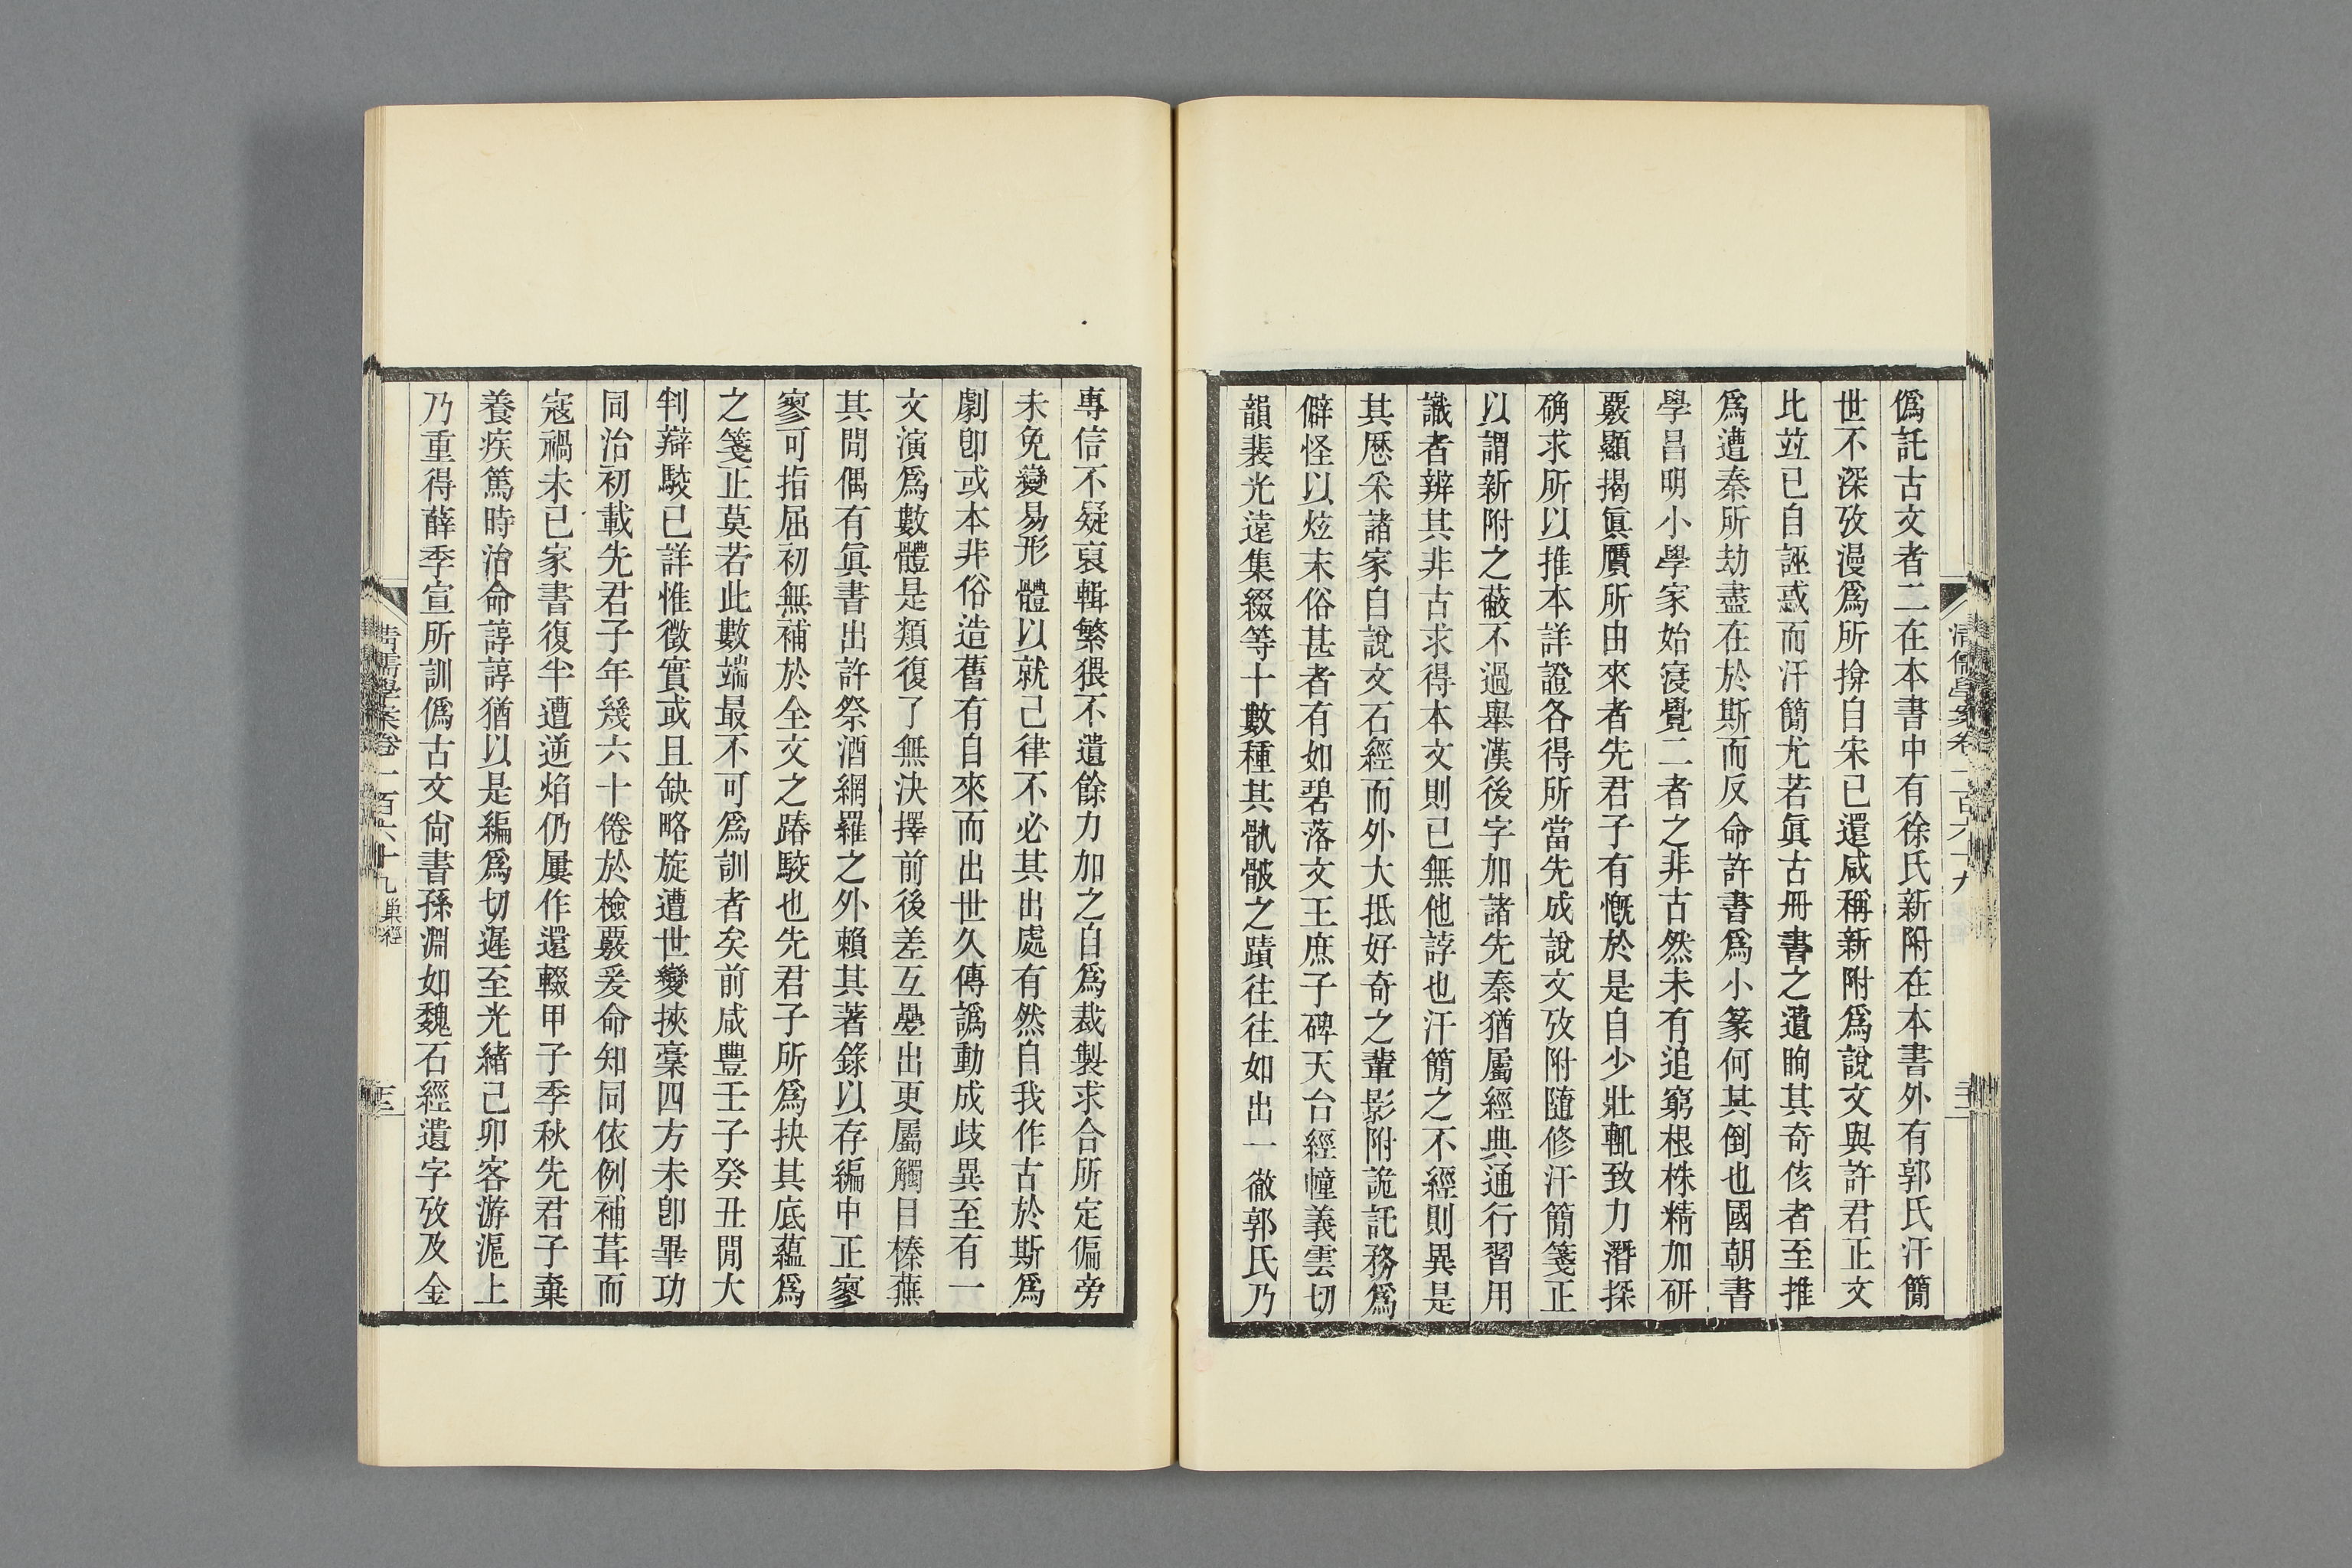 僞託古文者二在本書中有徐氏新附在本書外有郭氏汗簡
世不深攷漫爲所揜自宋已還咸稱新附爲說文與許君正文
比竝已自誣惑而汗簡尤若眞古冊書之遺眴其奇侅者至推
爲遭秦所劫盡在於斯而反命許書爲小篆何其倒也國朝書
學昌明小學家始寖覺二者之非古然未有追窮根株精加研
覈顯揭眞贋所由來者先君子有慨於是自少壯輒致力潛探
确求所以推本詳證各得所當先成說文攷附隨修汗簡箋正
以謂新附之蔽不過舉漢後字加諸先秦猶屬經典通行習用
識者辨其非古求得本文則已無他誖也汗簡之不經則異是
其厯采諸家自說文石經而外大抵好奇之輩影附詭託務爲
僻怪以炫末俗甚者有如碧落文王庶子碑天台經幢義雲切
韻裴光遠集綴等十數種其骩骳之蹟往往如出一徹郭氏乃
專信不疑裒輯繁猥不遺餘力加之自爲裁製求合所定偏旁
未免變易形體以就己律不必其出處有然自我作古於斯爲
劇卽或本非俗造舊有自來而出世久傳譌動成歧異至有一
文演爲數體是類復了無決擇前後差互疊出更屬觸目榛蕪
其閒偶有眞書出許祭酒網羅之外賴其著錄以存編中正寥
寥可指屈初無補於全文之踳駮也先君子所爲抉其底蘊爲
之箋正莫若此數端最不可爲訓者矣前咸豐壬子癸丑閒大
判辯駮已詳惟徵實或且缺略旋遭世變挾稾四方未卽畢功
同治初載先君子年幾六十倦於檢覈爰命知同依例補葺而
寇禍未已家書復半遭逆焰仍屢作還輟甲子季秋先君子棄
養疾篤時治命諄諄猶以是編爲切遲至光緒己卯客游滬上
乃重得薛季宣所訓僞古文尙書孫淵如魏石經遺字攷及金
清儒學案卷一百六十九 巢經